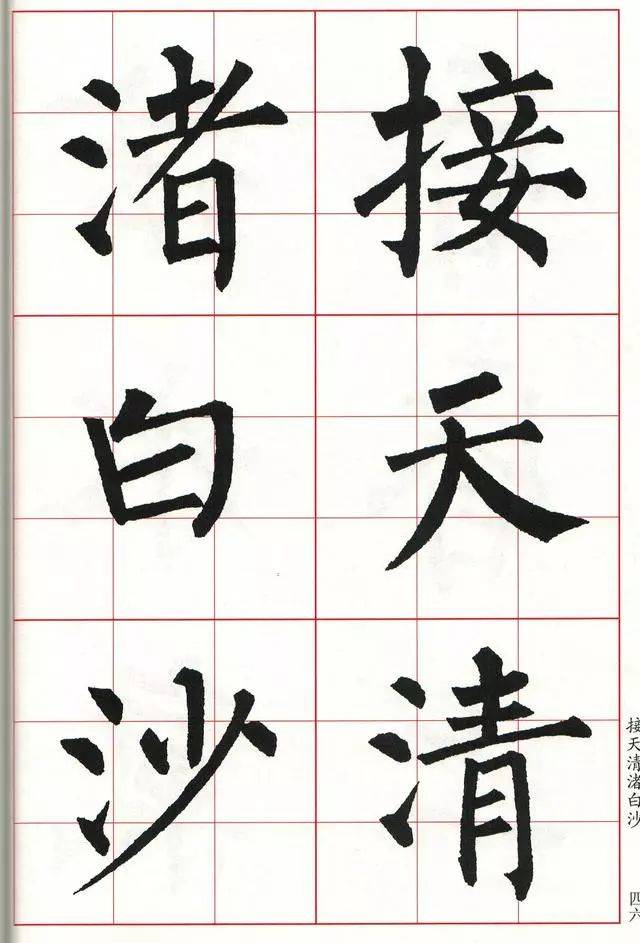 接天清
渚白沙
接天清渚白沙
四六